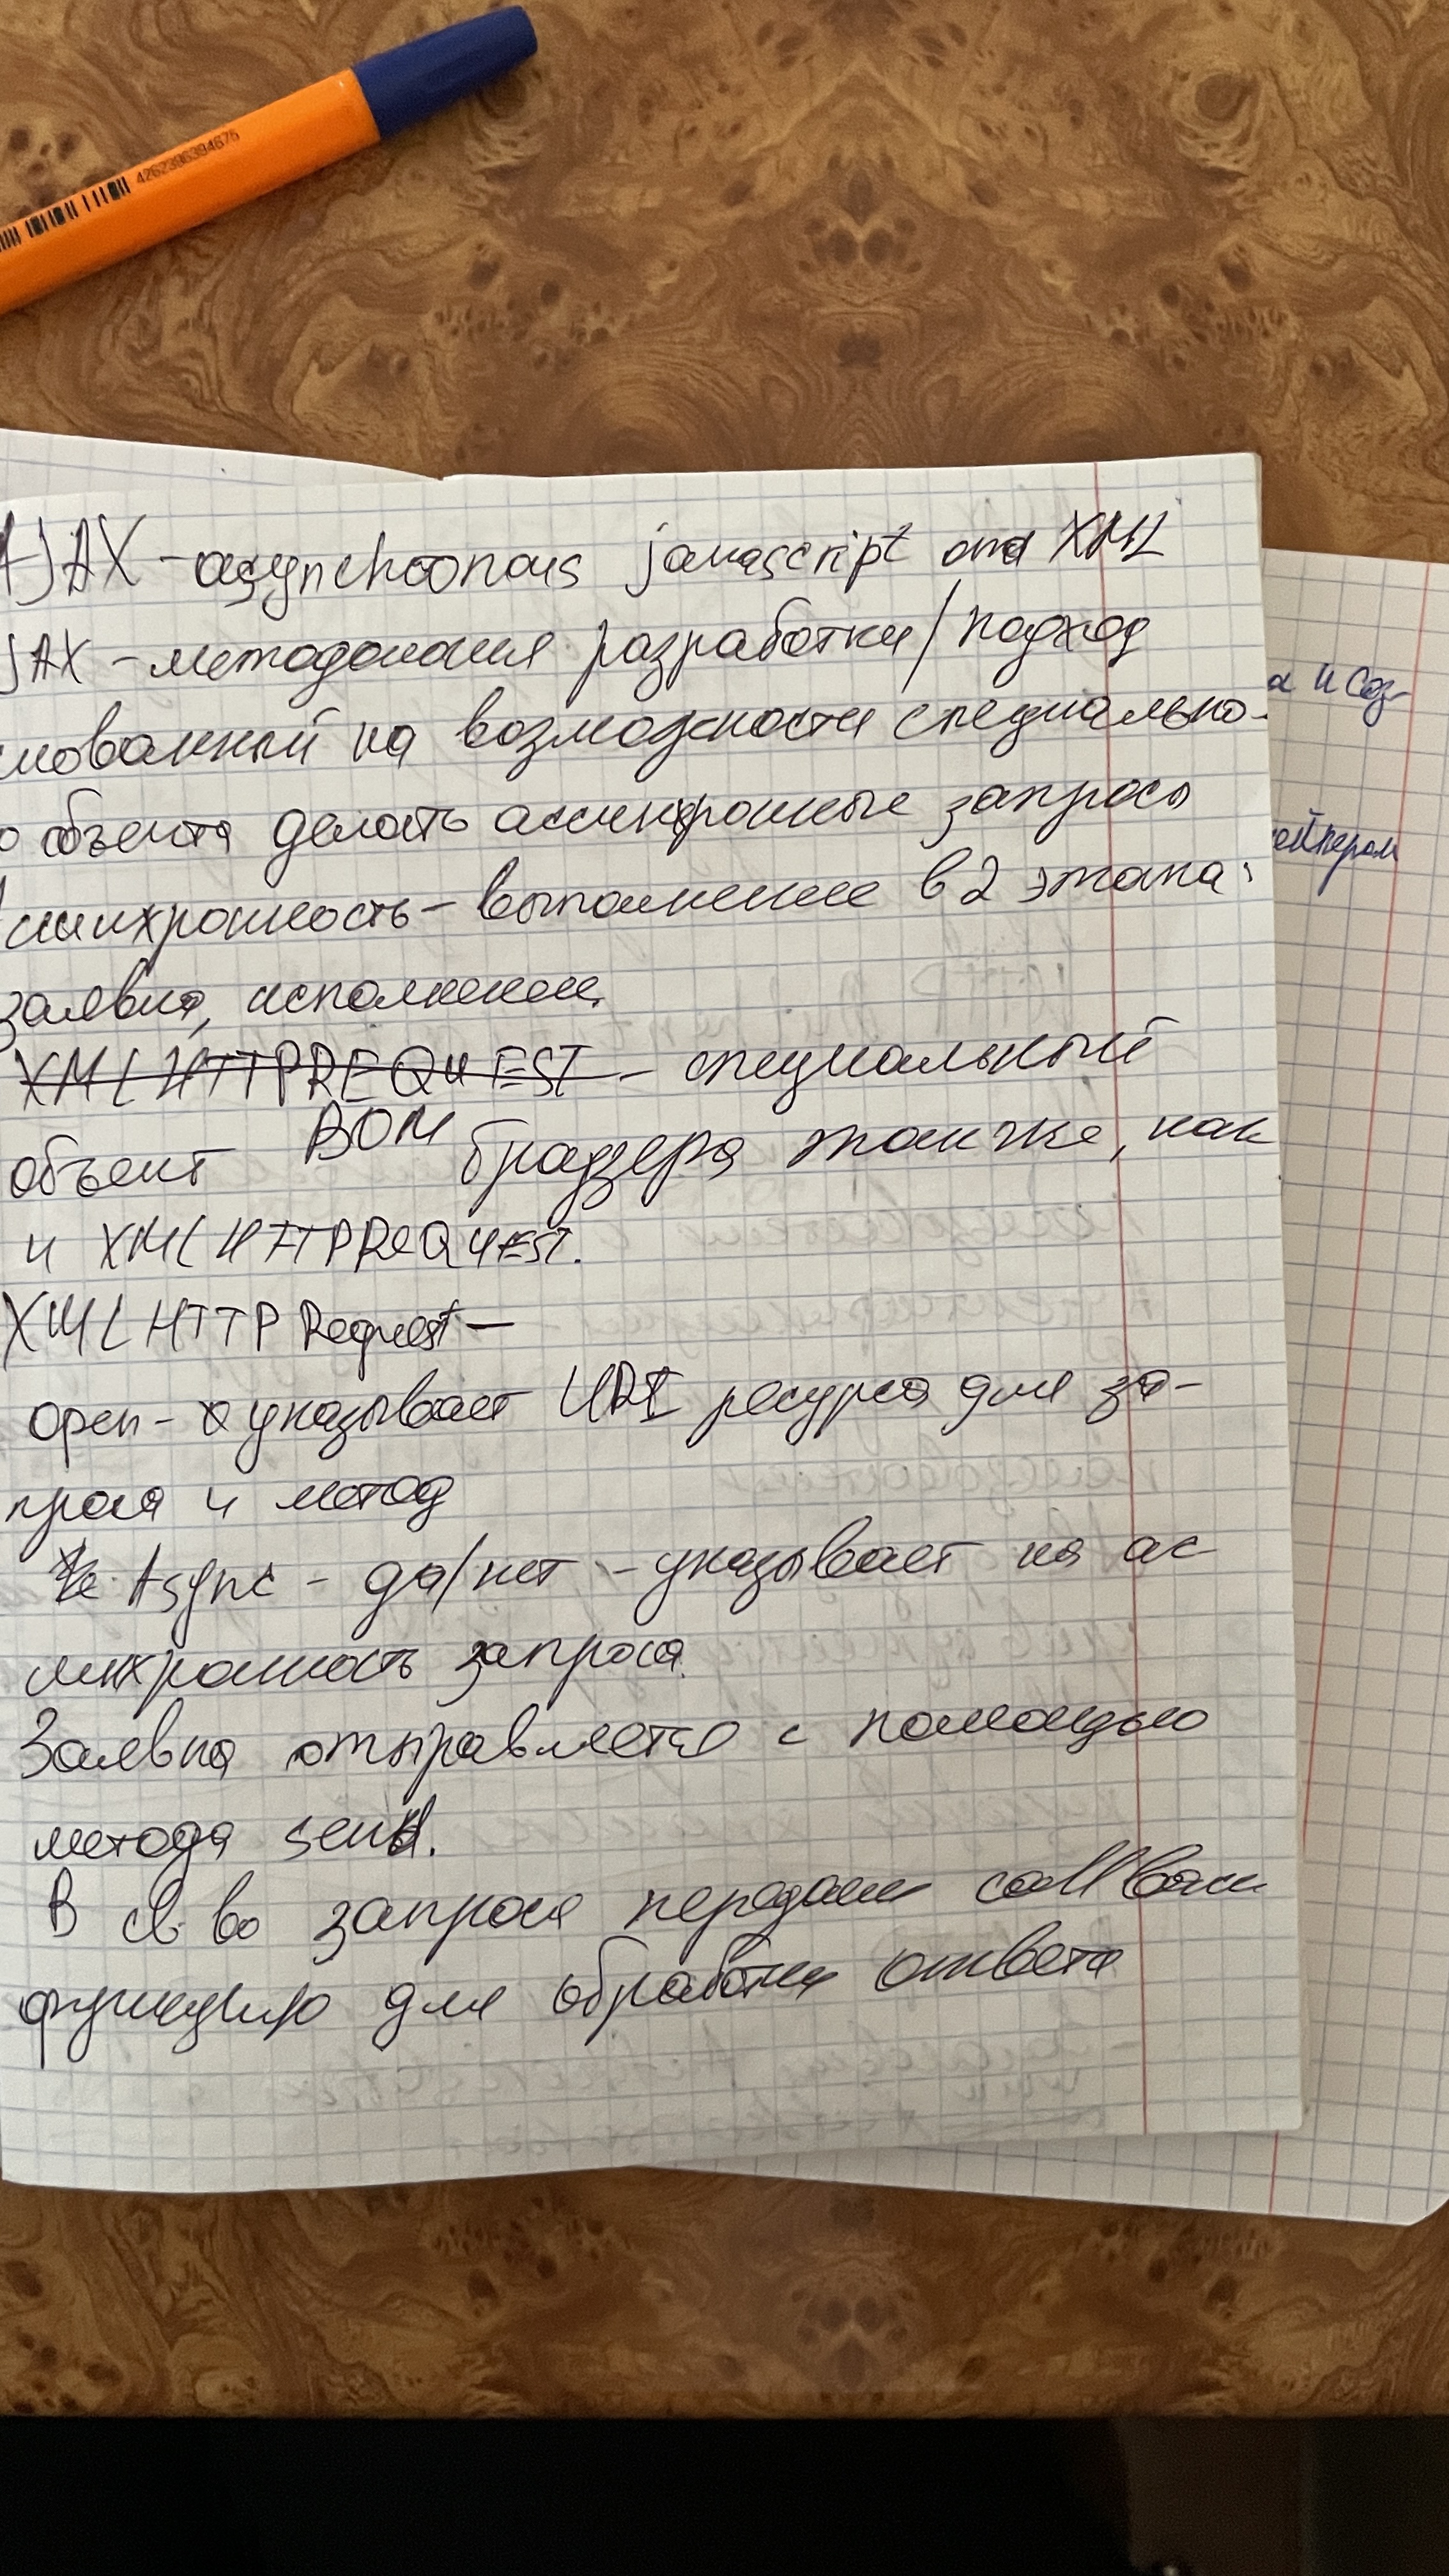 4262396394675
AJAX - asynchronous javascript and XML
JAX - методология разработки/подход
нованный на возможности специально-
о объекта делать асинхронные запросы
Асинхронность - выполнение в 2 этапа:
заявка, исполнение.
XMLHTTPREQUEST - специальный
объект BOM браузера также, как
и XMLHTTPREQUEST.
XMLHTTPRequest -
open - указывает URI ресурса для за-
проса и метод
Async - да/нет - указывает на ас-
инхронность запроса.
Заявка отправляется с помощью
метода send.
В св-во запроса передаем callback
функцию для обработки ответа
а и соз-